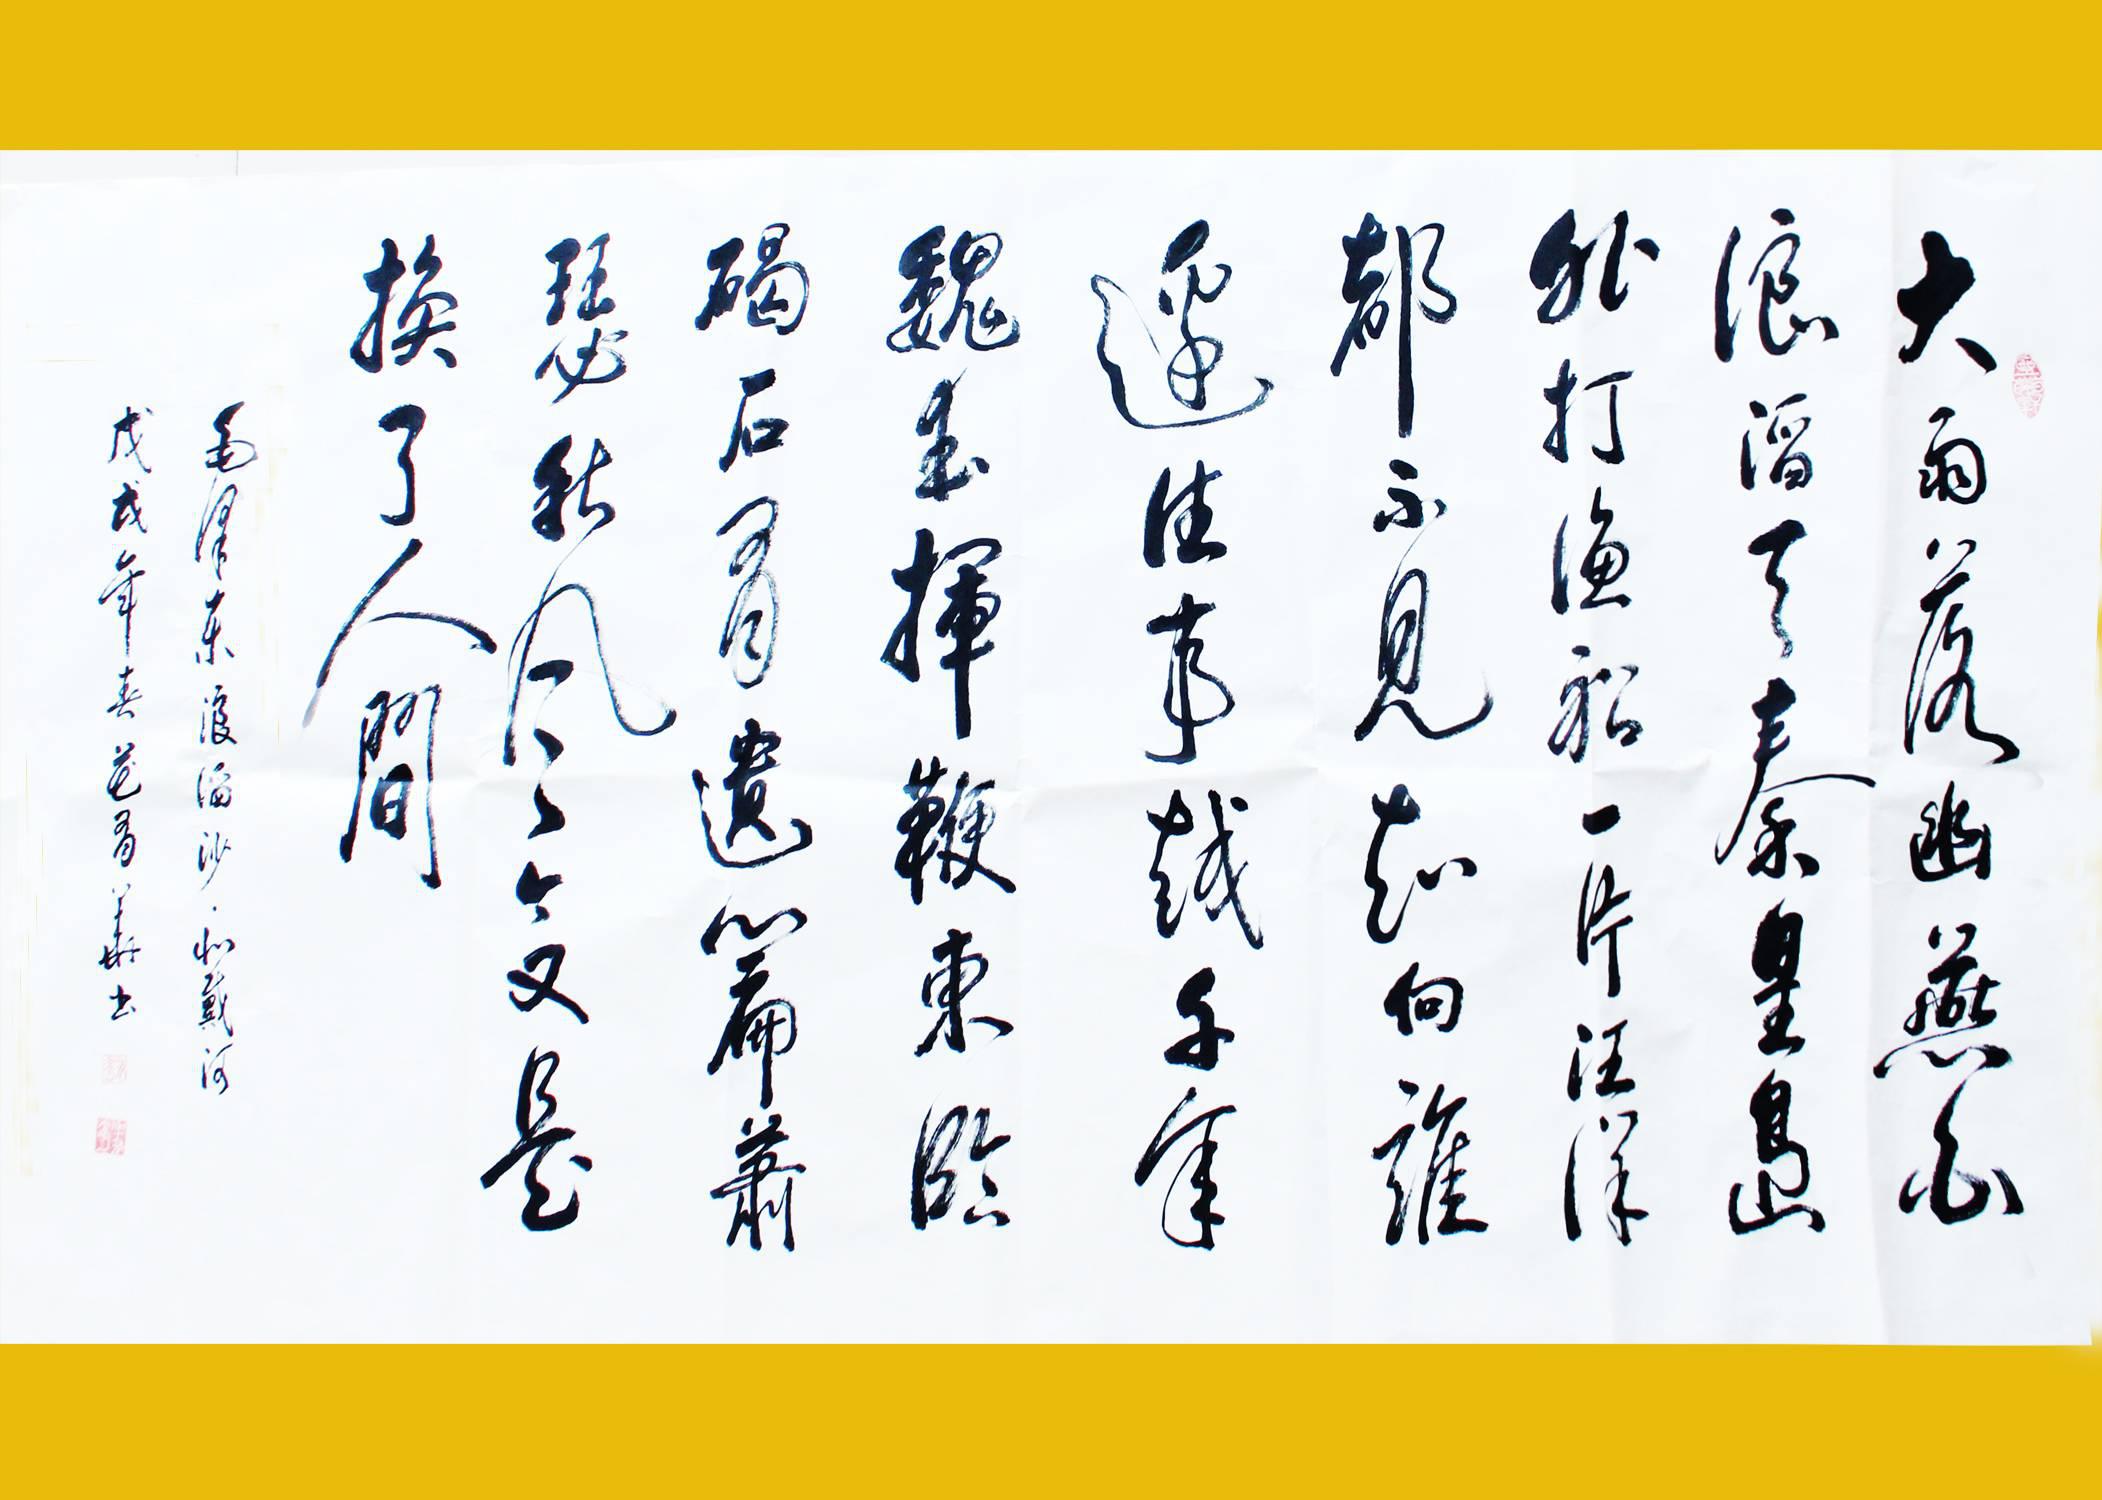 大雨落幽燕白
浪滔天秦皇島
外打漁船一片汪洋
都不見知向誰
邊往事越千年
魏武揮鞭東臨
碣石有遺篇蕭
瑟秋風今又是
換了人間
毛澤东浪淘沙·北戴河
戊戌年春 書